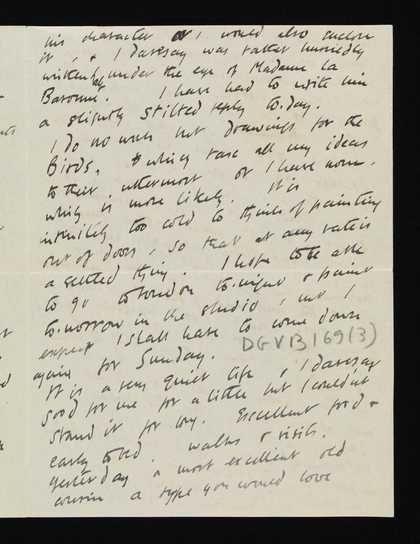 his character or I would also enclose
it, & I daresay was rather hurriedly
written, under the eye of Madame la
Baronne. I have had to write him
a slightly stilted reply to-day.
I do no work but drawings for the
Birds, which take all my ideas
to their uttermost or I have none,
which is more likely. It is
infinitely too cold to think of painting
out of doors, so that at any rate is
a settled thing. I hope to be able
to go to London to-night & paint
to-morrow in the studio, but I
expect I shall have to come down
again for Sunday.
DGVB 169(3)
It is a very quiet life & I daresay
good for me for a little but I couldn't
stand it for long. Excellent food &
early to bed, walks & visits.
Yesterday a most excellent old
cousin a type you would love